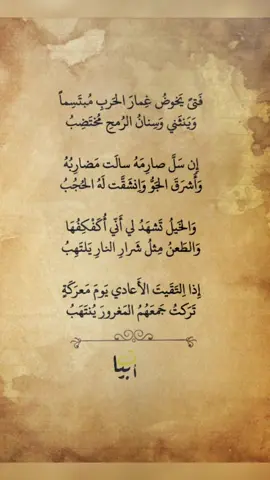 فَتىً يَخوضُ غِمارَ الحَربِ مُبتَسِماً
وَيَنثَني وَسِنانُ الرُمحِ مُختَضِبُ
إِن سَلَّ صارِمَهُ سالَت مَضارِبُهُ
وَأَشرَقَ الجَوُّ وَاِنشَقَّت لَهُ الحُجُبُ
وَالخَيلُ تَشهَدُ لي أَنّي أُكَفكِفُها
وَالطَعنُ مِثلُ شَرارِ النارِ يَلتَهِبُ
إِذا اِلتَقَيتَ الأَعادي يَومَ مَعرَكَةٍ
تَرَكتُ جَمعَهُمُ المَغرورَ يُنتَهَبُ